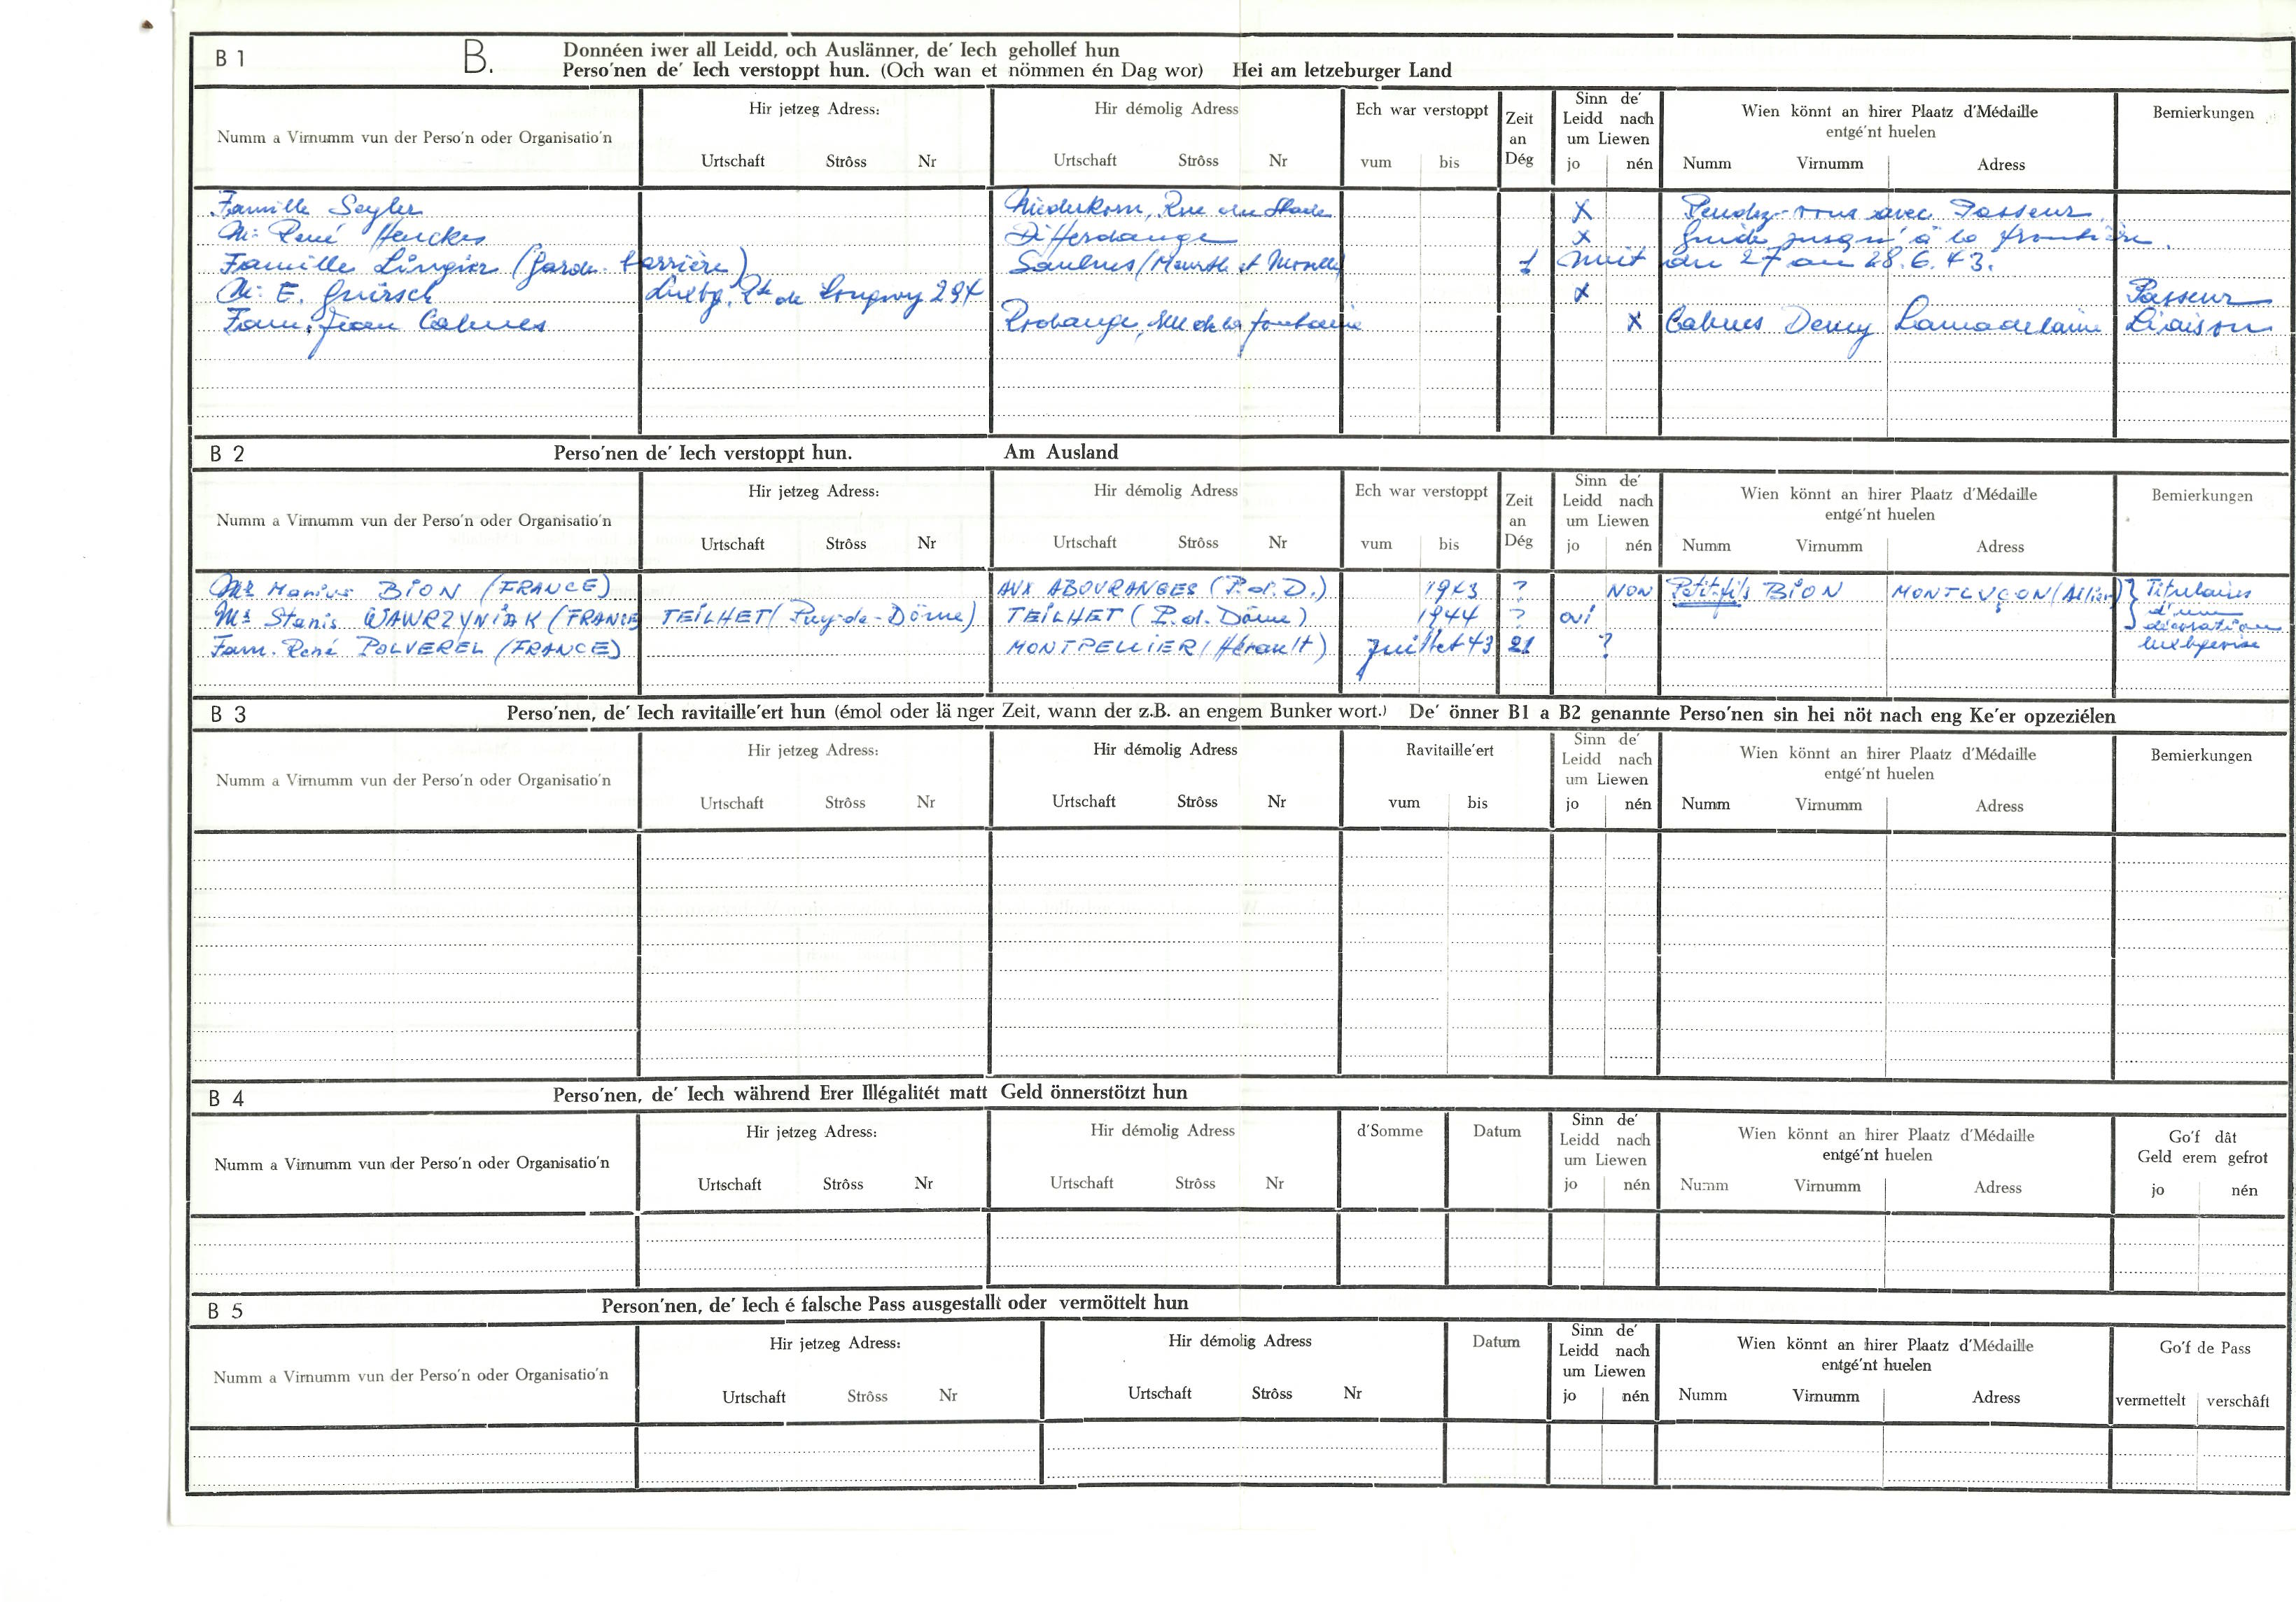 B 1 B. Donnéen iwer all Leidd, och Auslänner, de' Iech gehollef hun
Perso'nen de' Iech verstoppt hun. (Och wan et nömmen én Dag wor) Hei am letzeburger Land
Numm a Virnumm vun der Perso'n oder Organisatio'n
Hir jetzeg Adress:
Urtschaft Strôss Nr
Hir démolig Adress
Urtschaft Strôss Nr
Ech war verstoppt
vum bis
Zeit
an
Dég
Sinn de'
Leidd nach
um Liewen
jo nén
Wien könnt an hirer Plaatz d'Médaille
entgé'nt huelen
Numm Virnumm Adress
Bemierkungen
Famille Seyler Niederkorn, Rue du Stade x Rendez-vous avec Passeur.
Mr René Henckes Differdange x Guide jusqu'à la frontière.
Famille Lingier (Garde-barrière) Saulnes (Meurthe et Moselle) 1 nuit du 27 au 28.6.43.
Mr E. Guirsch Luxbg. Rte de Longwy 294 x Passeur
Fam. Jean Calmes Rodange, de la fontaine x Calmes Lamadelaine Liaison
B 2 Perso'nen de' Iech verstoppt hun. Am Ausland
Numm a Virnumm vun der Perso'n oder Organisatio'n
Hir jetzeg Adress:
Urtschaft Strôss Nr
Hir démolig Adress
Urtschaft Strôss Nr
Ech war verstoppt
vum bis
Zeit
an
Dég
Sinn de'
Leidd nach
um Liewen
jo nén
Wien könnt an hirer Plaatz d'Médaille
entgé'nt huelen
Numm Virnumm Adress
Bemierkungen
Mr Marius BION (FRANCE) AUX ABOURANGES (P. d. D.) 1943 ? NON Petit-fils BION MONTLUÇON (Allier) } Titulaires
Mr Stanis WAWRZYNIAK (FRANCE) TEILHET (Puy-de-Dôme) TEILHET (P. d. Dôme) 1944 ? oui d'une
décoration
Fam. René POLVEREL (FRANCE) MONTPELLIER (Hérault) Juillet 43 21 ? luxbgeoise
B 3 Perso'nen, de' Iech ravitaille'ert hun (émol oder länger Zeit, wann der z.B. an engem Bunker wort.) De' önner B1 a B2 genannte Perso'nen sin hei nöt nach eng Ke'er opzeziélen
Numm a Virnumm vun der Perso'n oder Organisatio'n
Hir jetzeg Adress:
Urtschaft Strôss Nr
Hir démolig Adress
Urtschaft Strôss Nr
Ravitaille'ert
vum bis
Sinn de'
Leidd nach
um Liewen
jo nén
Wien könnt an hirer Plaatz d'Médaille
entgé'nt huelen
Numm Virnumm Adress
Bemierkungen
B 4 Perso'nen, de' Iech während Erer Illégalitét matt Geld önnerstötzt hun
Numm a Virnumm vun der Perso'n oder Organisatio'n
Hir jetzeg Adress:
Urtschaft Strôss Nr
Hir démolig Adress
Urtschaft Strôss Nr
d'Somme
Datum
Sinn de'
Leidd nach
um Liewen
jo nén
Wien könnt an hirer Plaatz d'Médaille
entgé'nt huelen
Numm Virnumm Adress
Go'f dât
Geld erem gefrot
jo nén
B 5 Person'nen, de' Iech é falsche Pass ausgestallt oder vermöttelt hun
Numm a Virnumm vun der Perso'n oder Organisatio'n
Hir jetzeg Adress:
Urtschaft Strôss Nr
Hir démolig Adress
Urtschaft Strôss Nr
Datum
Sinn de'
Leidd nach
um Liewen
jo nén
Wien könnt an hirer Plaatz d'Médaille
entgé'nt huelen
Numm Virnumm Adress
Go'f de Pass
vermettelt verschâft